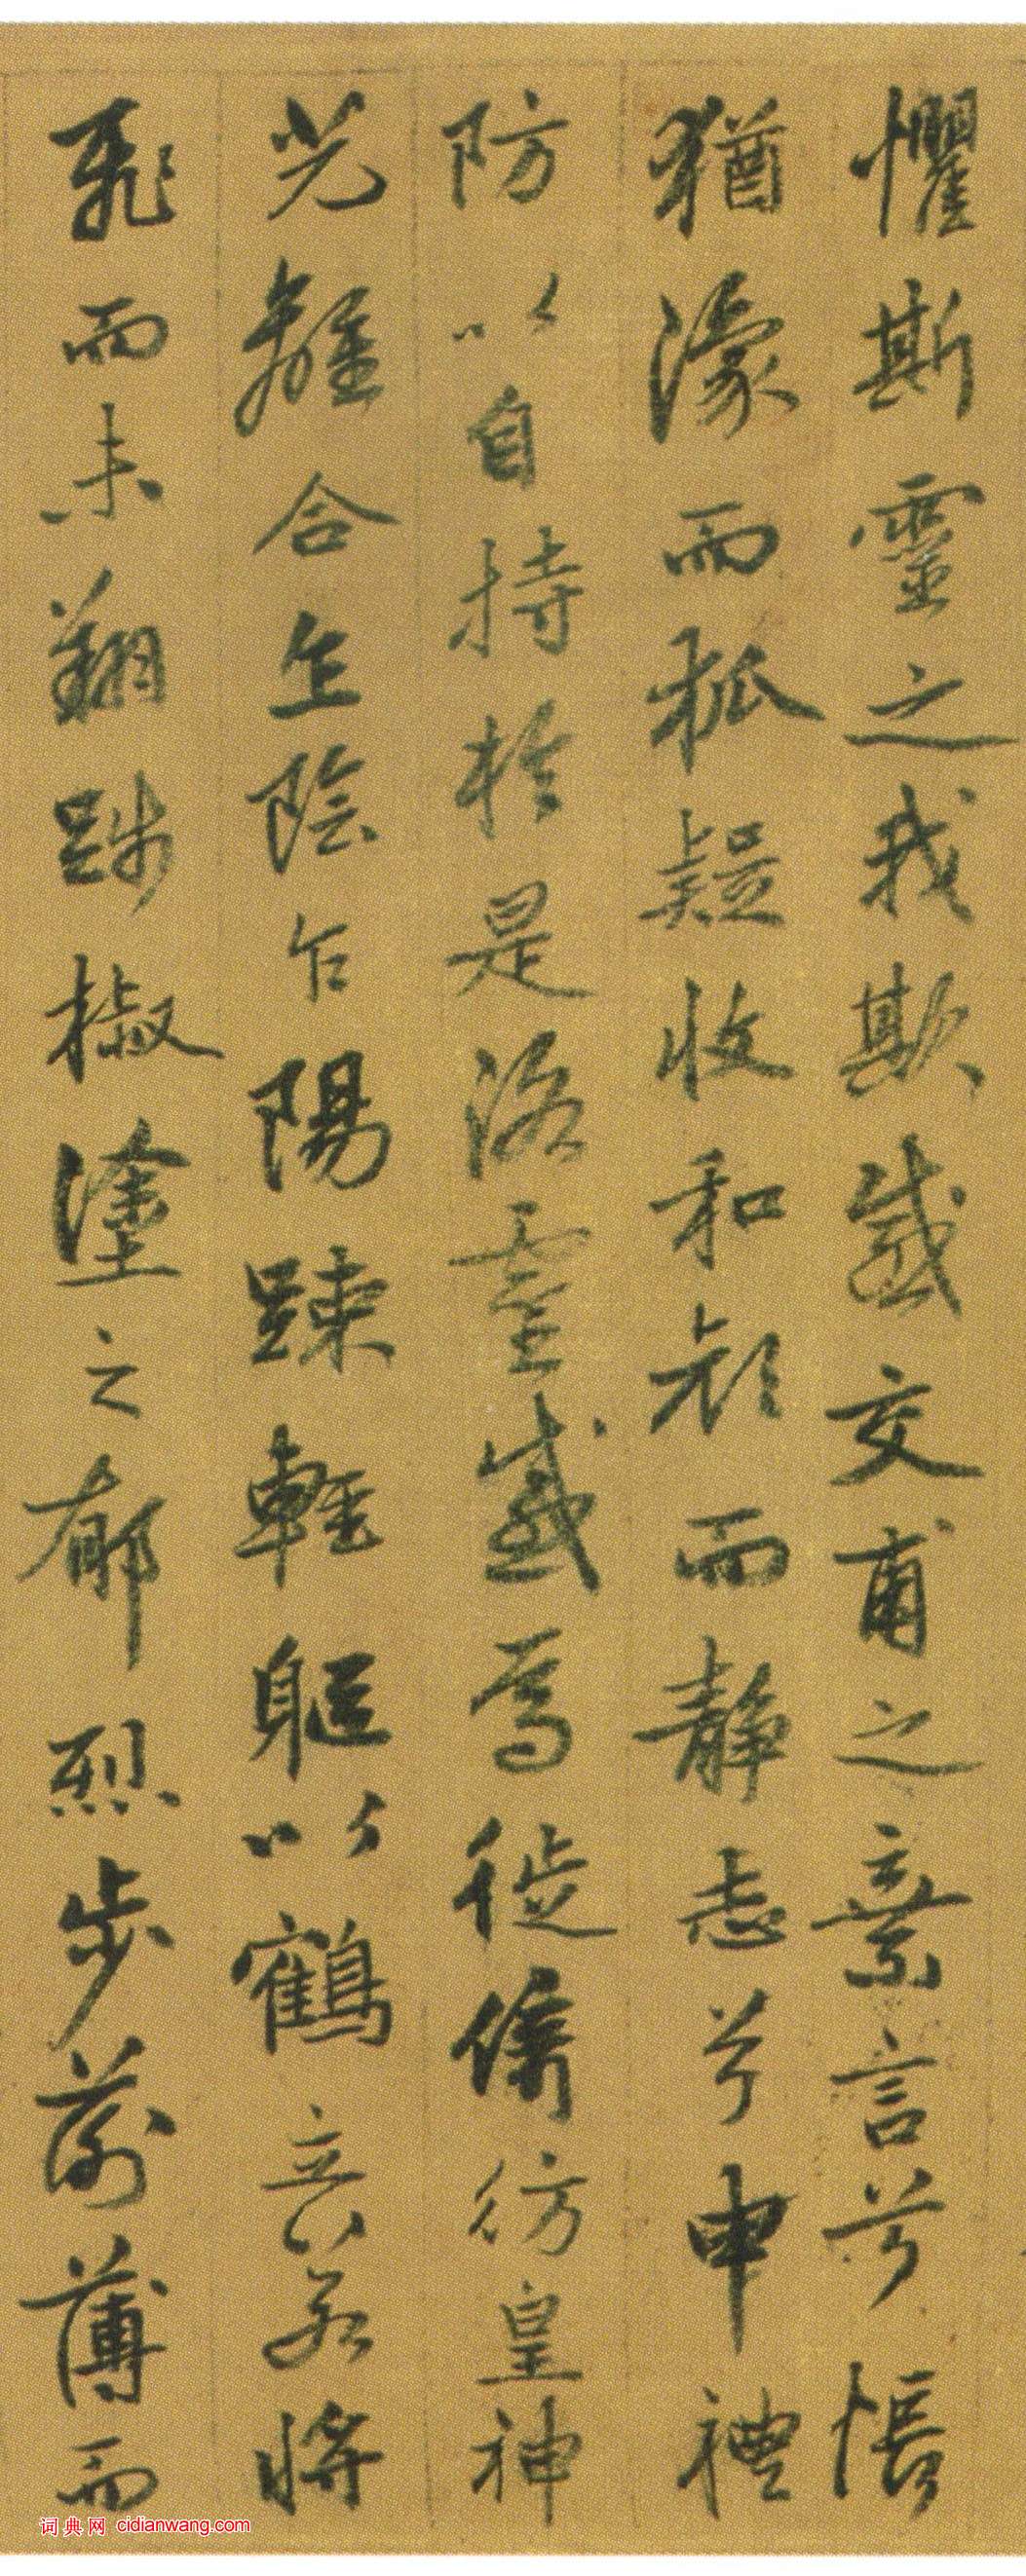 懼斯靈之我欺感交甫之棄言兮悵
猶豫而狐疑收和顏而靜志兮申禮
防以自持於是洛靈感焉徙倚彷皇神
光離合乍陰乍陽踈輕軀以鶴立若將
飛而未翔踐椒塗之郁烈步蘅薄而
词典网 cidianwang.com